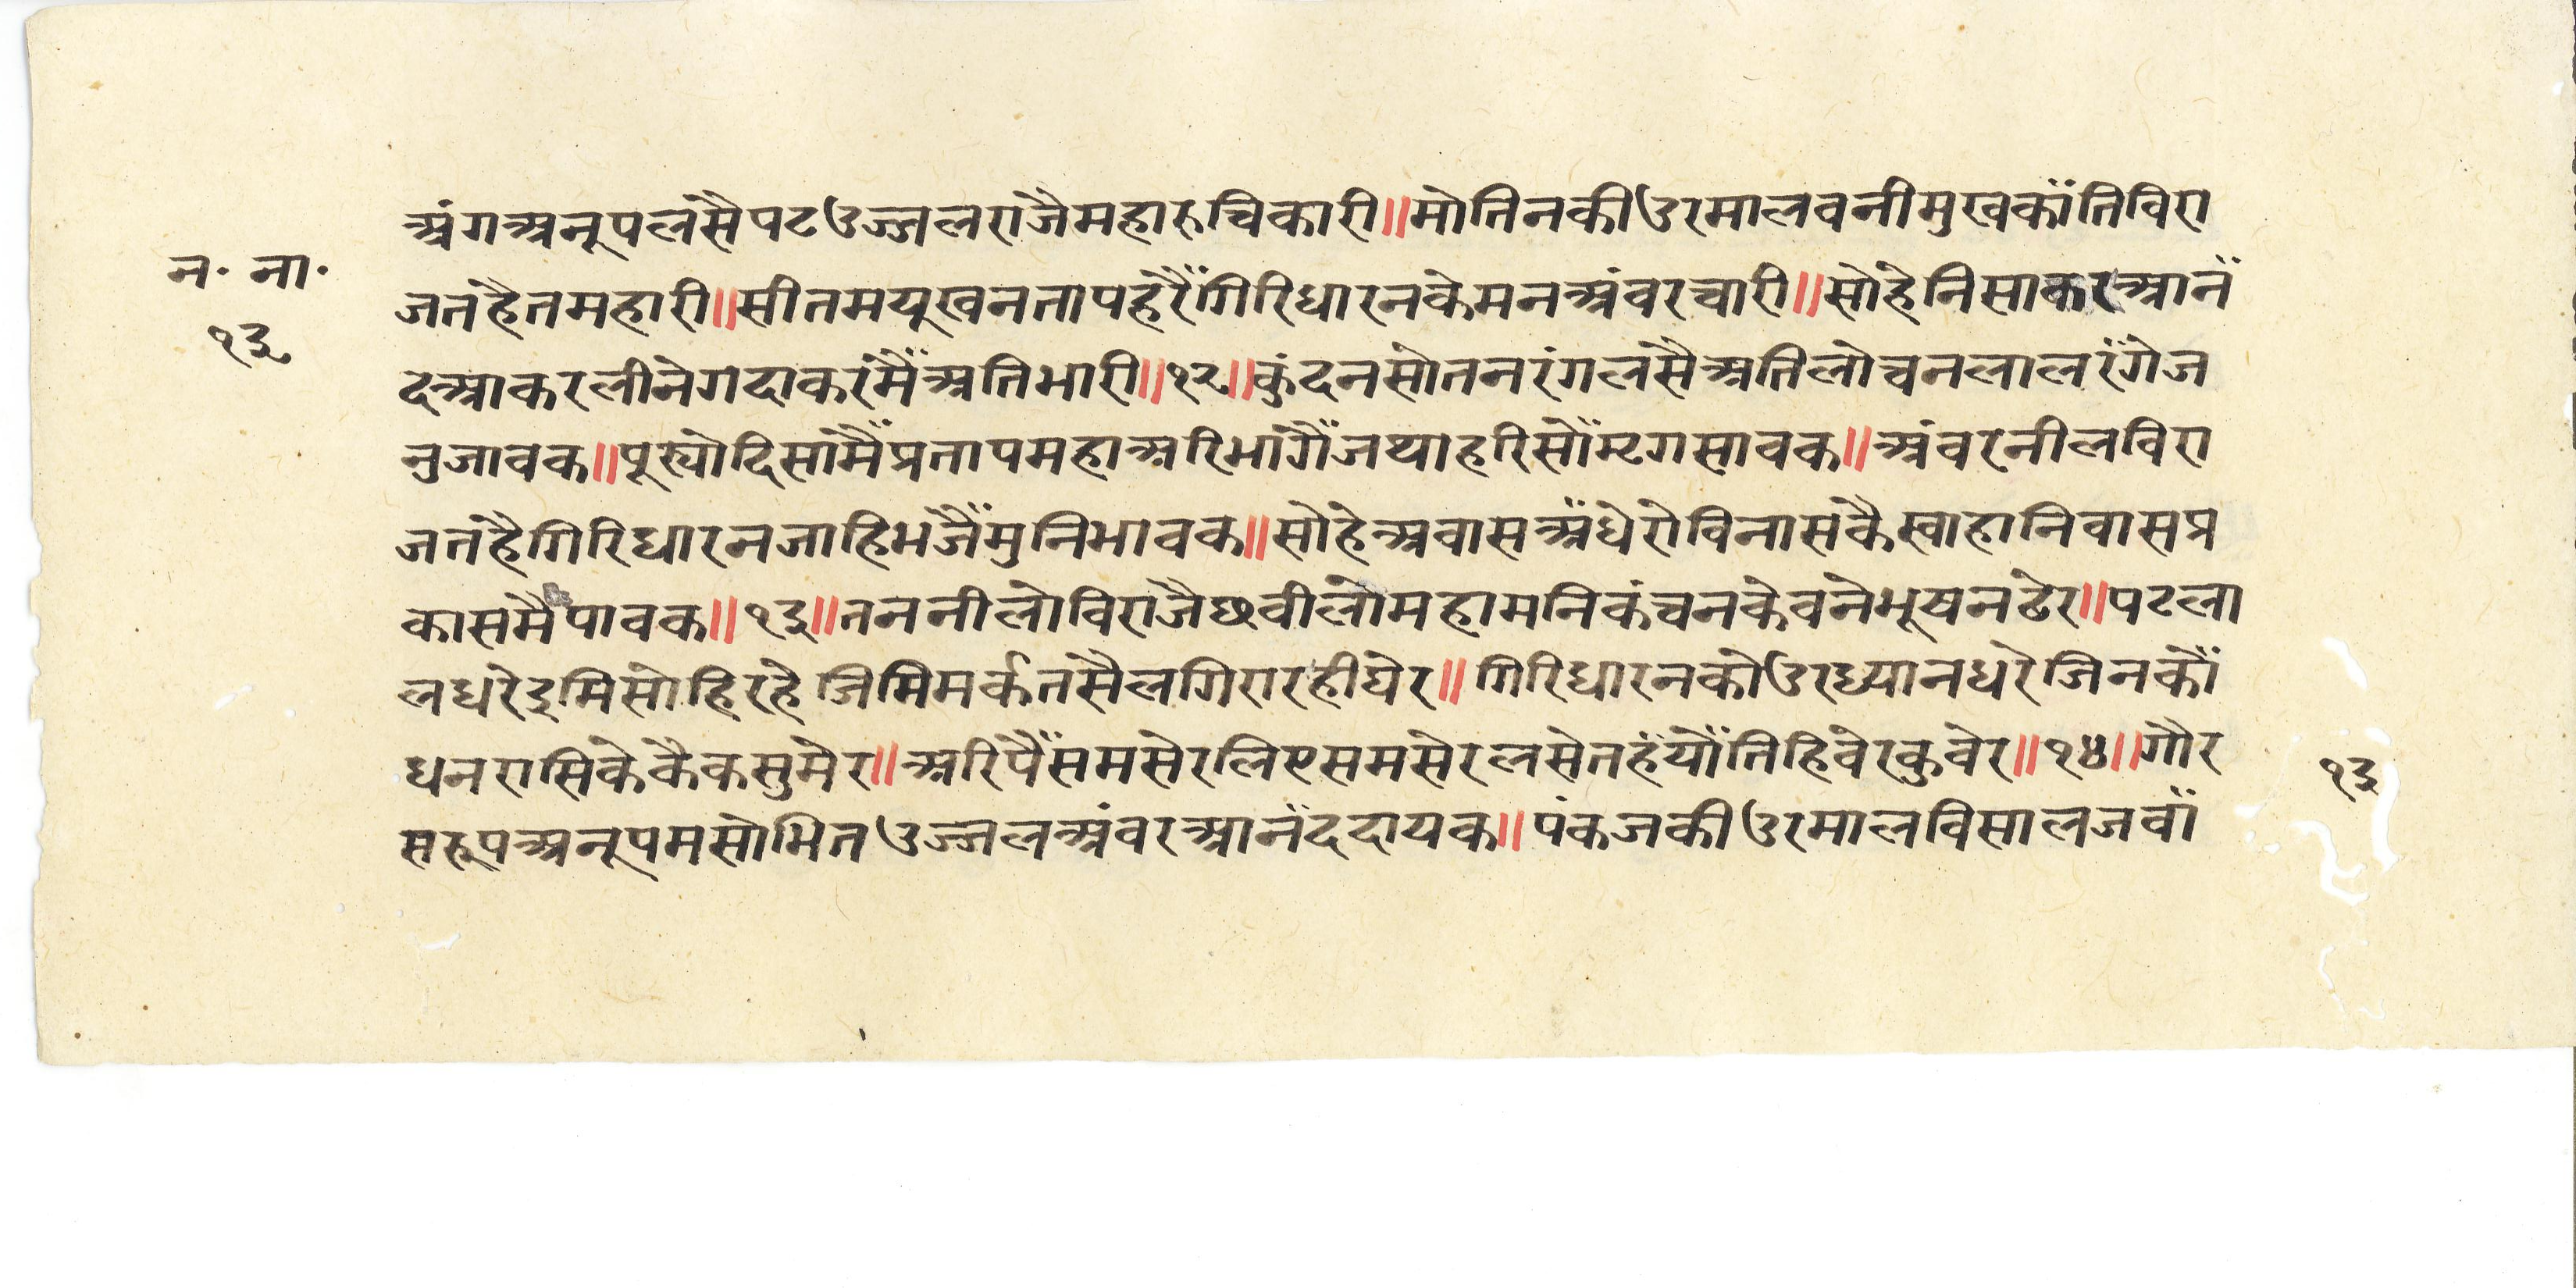 अंगअनूपलसैपटउज्जलराजैमहारुचिकारी॥मोतिनकीउरमालवनीमुखकाँतिविरा
न॰ ना॰
जतहैतमहारी॥सीतमयूखनतापहरैँगिरिधारनकेमनअंवरचारी॥सोहेनिसाकरआनँ
१३
दआकरलीनेगदाकरमैँअतिभारी॥१२॥कुंदनसोतनरंगलसैअतिलोचनलालरँगेज
नुजावक॥पूस्योदिसामैँप्रतापमहाअरिभागैँजथाहरिसोँमृगसावक॥अंवरनीलविरा
जतहैगिरिधारनजाहिभजैँमुनिभावक॥सोहेअवासअँधेरोविनासकैस्वाहानिवासप्र
कासमैपावक॥१३॥तननीलोविराजैछवीलोमहामनिकंचनकेवनेभूषनढेर॥पटला
लधरेइमिसोहिरहेजिमिमर्कतसैलगिरारहीघेर॥गिरिधारनकोउरध्यानधरेजिनकोँ
धनरासिकेकैकसुमेर॥अरिपैँसमसेरलिएसमसेरलसेतहँयोँतिहिवेरकुवेर॥१४॥गौर
१३
सरूपअनूपमसोभितउज्जलअंवरआनँददायक॥पंकजकीउरमालविसालजवाँ